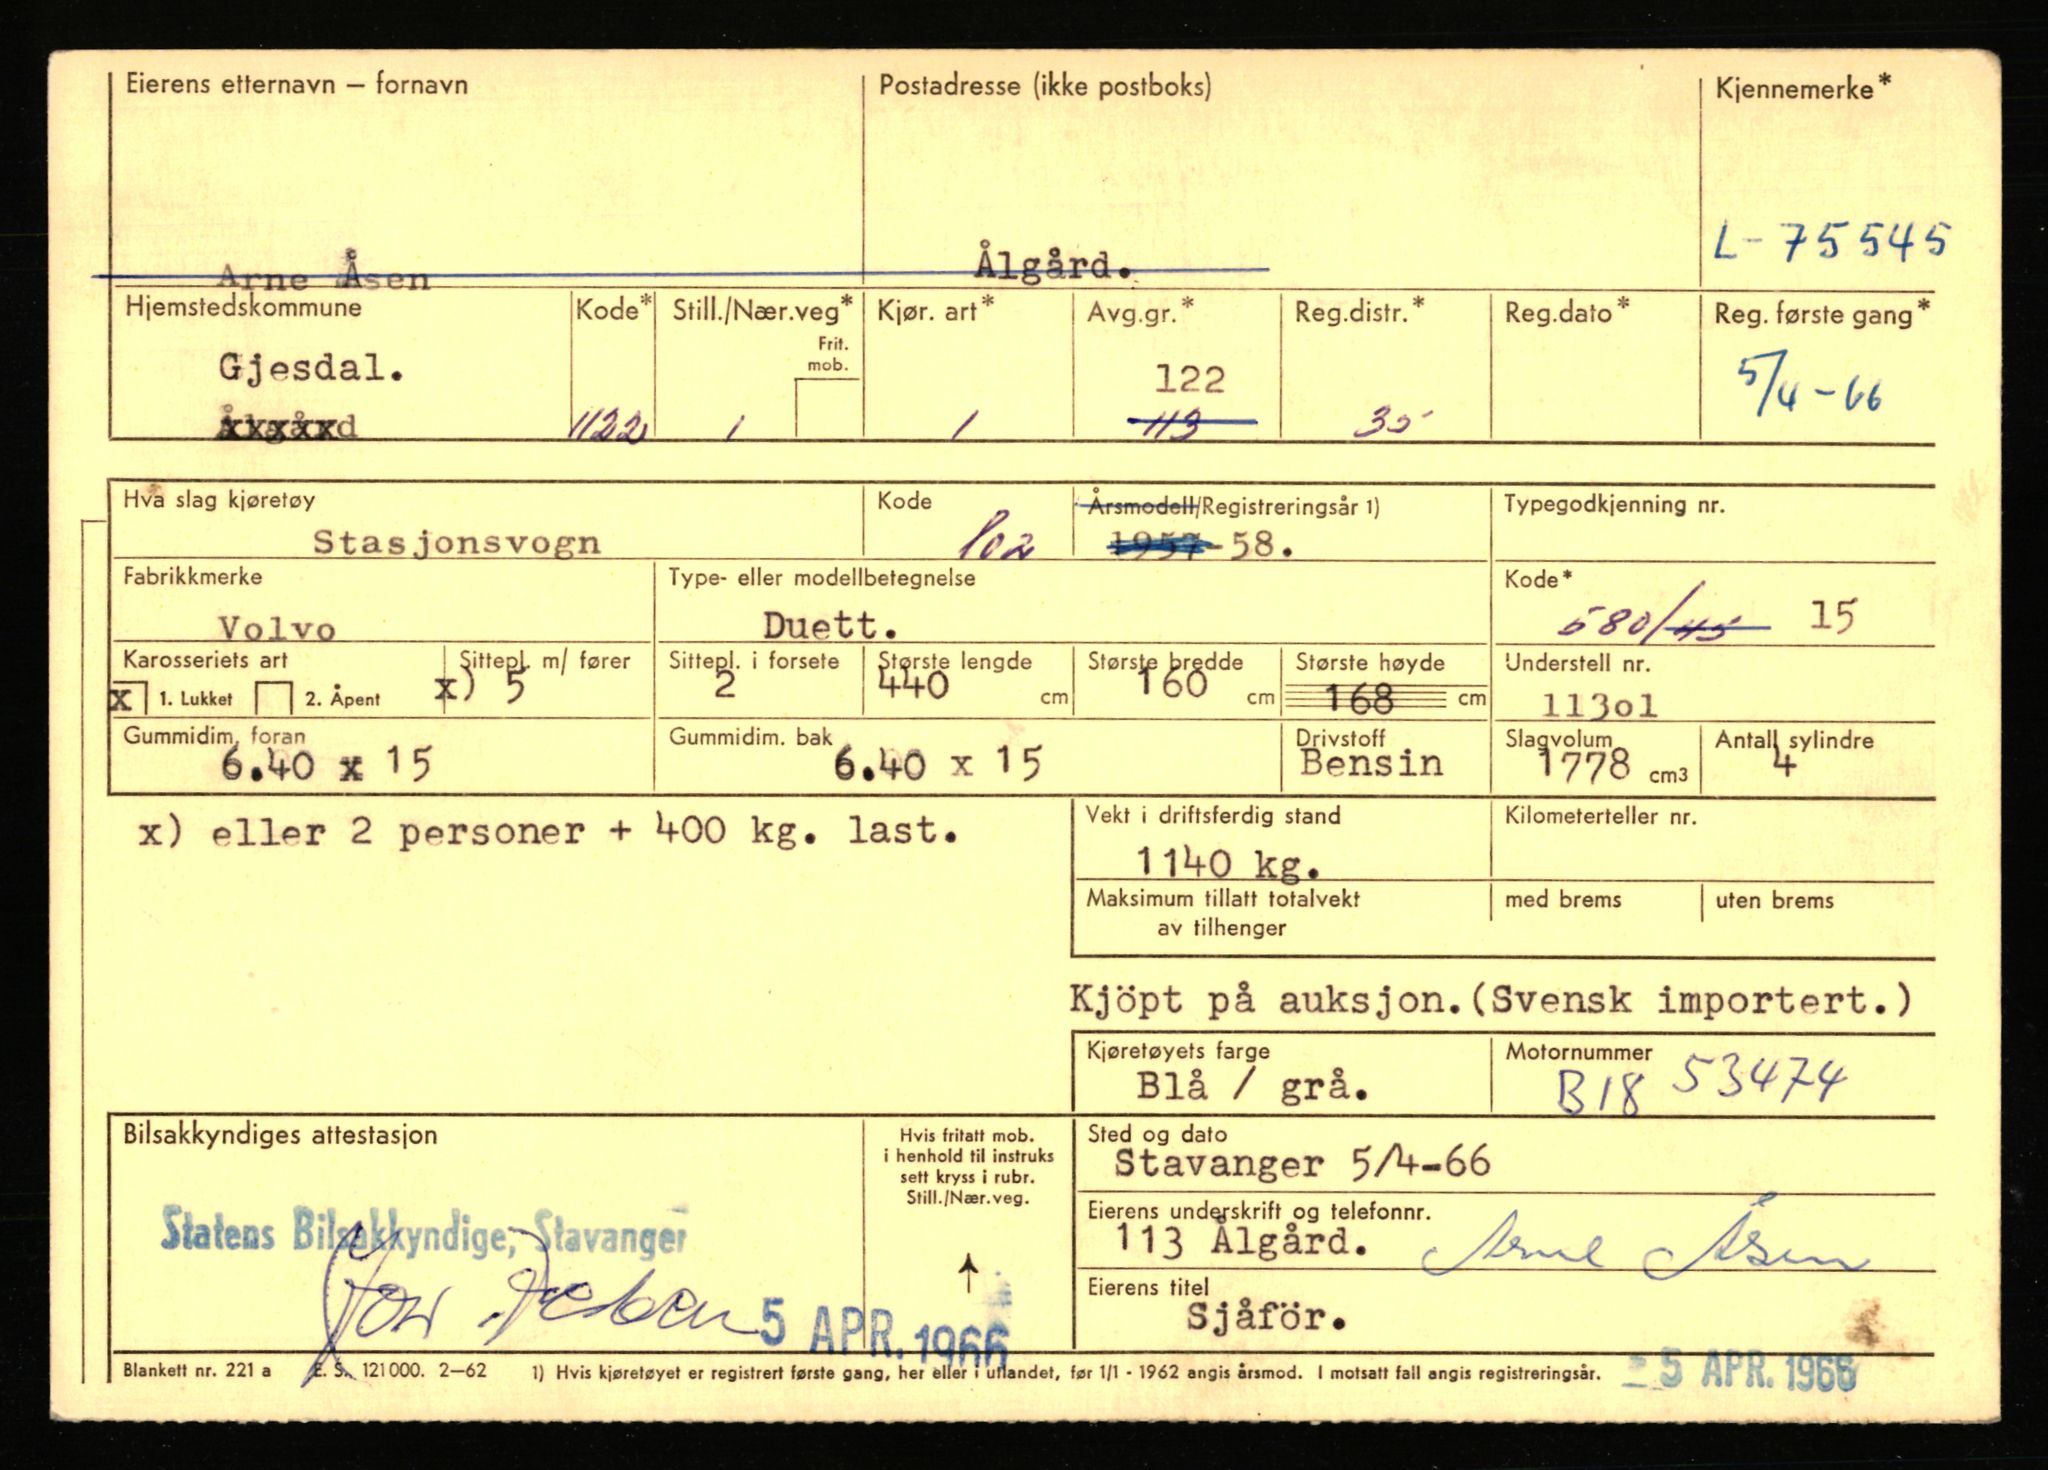 Eierens etternavn – fornavn Postadresse (ikke postboks) Kjennemerke*
L-75545
Arne Åsen Ålgård.
Hjemstedskommune Kode* Still./Nær.veg* Kjør. art* Avg.gr.* Reg.distr.* Reg.dato* Reg. første gang*
Frit. mob.
Gjesdal. 122 5/4-66
Ålgård 1122 1 1 113 35
Hva slag kjøretøy Kode Årsmodell/Registreringsår 1) Typegodkjenning nr.
Stasjonsvogn 102 1957-58.
Fabrikkmerke Type- eller modellbetegnelse Kode*
Volvo Duett. 580/45 15
Karosseriets art Sittepl. m/ fører Sittepl. i forsete Største lengde Største bredde Største høyde Understell nr.
x 1. Lukket 2. Åpent x) 5 2 440 cm 160 cm 168 cm 113o1
Gummidim. foran Gummidim. bak Drivstoff Slagvolum Antall sylindre
6.40 x 15 6.40 x 15 Bensin 1778 cm3 4
x) eller 2 personer + 400 kg. last.
Vekt i driftsferdig stand Kilometerteller nr.
1140 kg.
Maksimum tillatt totalvekt med brems uten brems
av tilhenger
Kjöpt på auksjon.(Svensk importert.)
Kjøretøyets farge Motornummer
Blå / grå. B18 53474
Bilsakkyndiges attestasjon
Hvis fritatt mob.
i henhold til instruks
sett kryss i rubr.
Still./Nær.veg.
Sted og dato
Stavanger 5/4-66
Statens Bilsakkyndige, Stavanger
Eierens underskrift og telefonnr.
113 Ålgård. Arne Åsen
Eierens titel
Sjåför.
5 APR. 1966
Blankett nr. 221 a E. S. 121000. 2–62 1) Hvis kjøretøyet er registrert første gang, her eller i utlandet, før 1/1 - 1962 angis årsmod. I motsatt fall angis registreringsår.
- 5 APR. 1966